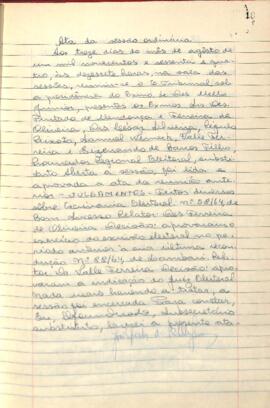 Ata da sessão ordinária
Aos treze dias do mês de agosto de
um mil novecentos e sessenta e qua-
tro, às dezesseis horas, na sala das
sessões, reuniu-se o Tribunal, sob
a presidência do Exmo. Sr. Des. Mello
Júnior, presentes os Exmos. Srs. Des.
Furtado de Mendonça e Ferreira de
Oliveira, Drs.
Peixoto, Valle Fer-
reira e de Barros Filho,
Procurador Regional Eleitoral, substi-
tuto. Aberta a sessão, foi lida e
aprovada a ata da reunião ante-
rior. JULGAMENTOS - Feitos diversos
sobre Escrivania Eleitoral nº 88/64, de
Bom Sucesso. Relator: Des. Ferreira
de Oliveira. Decisão: aprovaram o
exercício do escrivão eleitoral no pe-
ríodo anterior à sua última recon-
dução. Nº 88/64, de Lambari. Rela-
tor: Dr. Valle Ferreira. Decisão: apro-
varam a indicação do Juiz Eleitoral.
Nada mais havendo a tratar, a
sessão foi encerrada. Para constar,
Eu, Subsecretário
substituto, lavrei a presente ata.